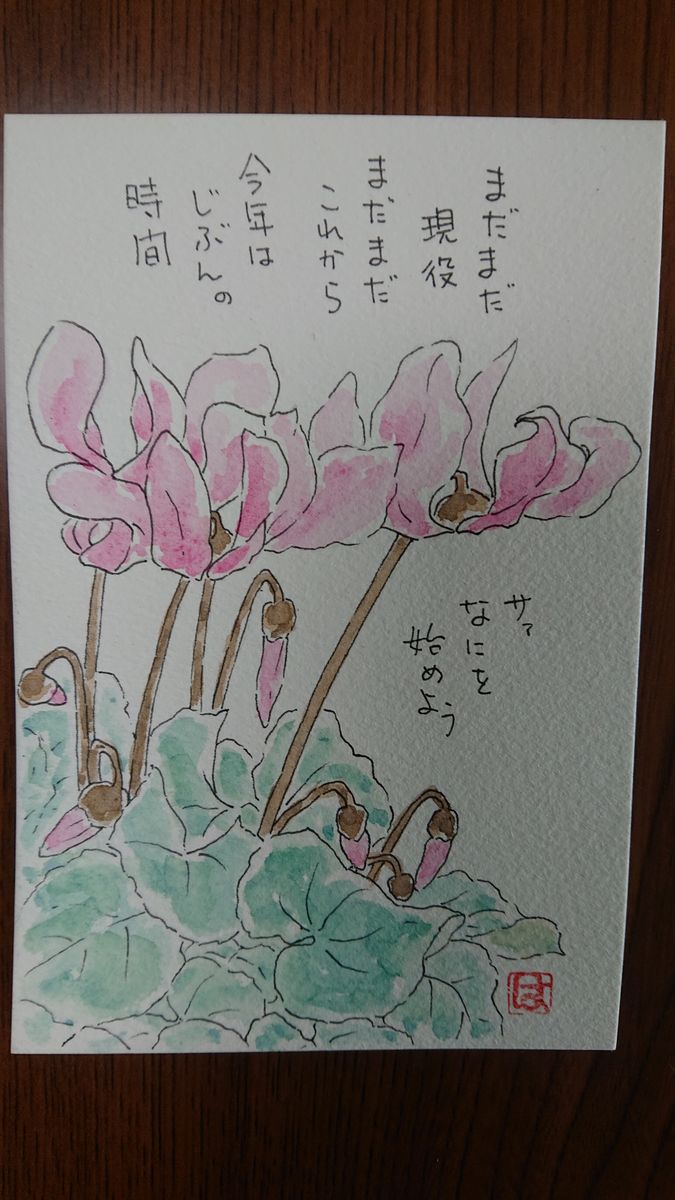 まだまだ
現役
まだまだ
これから
今年は
じぶんの
時間
サァ
なにを
始めよう